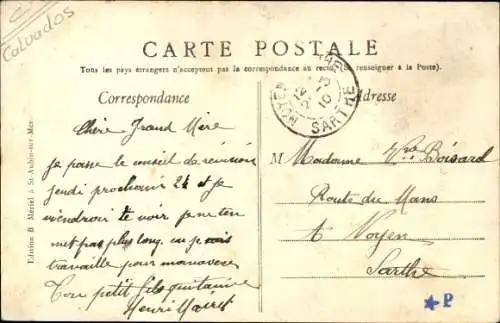 Calvados
CARTE POSTALE
Tous les pays étrangers n'acceptent pas la correspondance au recto (Se renseigner à la Poste).
Correspondance
Adresse
NOYEN
SARTHE
Edition B. Mériel à St-Aubin-sur-Mer
Chère Grand Mère
je passe le conseil de révision
jeudi prochain 24 et je
viendroi te voir je ne ten
met pas plus long. car je vais
travaille pour manœuvre
Ton petit fils quitaime
Henri
M Madame Vve Boisard
Route du Mans
A Noyen
Sarthe
P